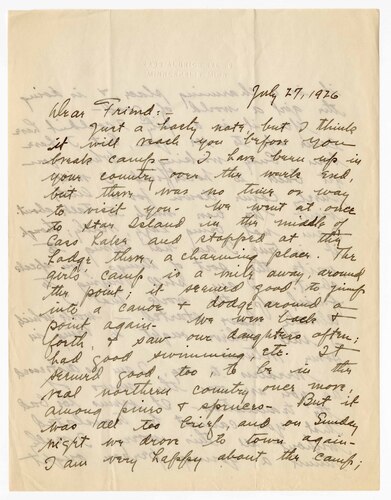 July 27, 1926
Dear Friend:
Just a hasty note, but I think
it will reach you before you
break camp - I have been up in
your country over the week end,
but there was no time or way
to visit you - We went at once
to Star Island in the middle of
Cass Lake and stopped at the
Lodge there, a charming place. The
girls' camp is a mile away, around
the point; it seemed good to jump
into a canoe & dodge around a
point again - We were back &
forth, & saw our daughters often;
had good swimming, etc. It
seemed good too to be in the
real northern country once more,
among pines & spruces - But it
was all too brief and on Sunday
night we drove to town again -
I am very happy about the camp;